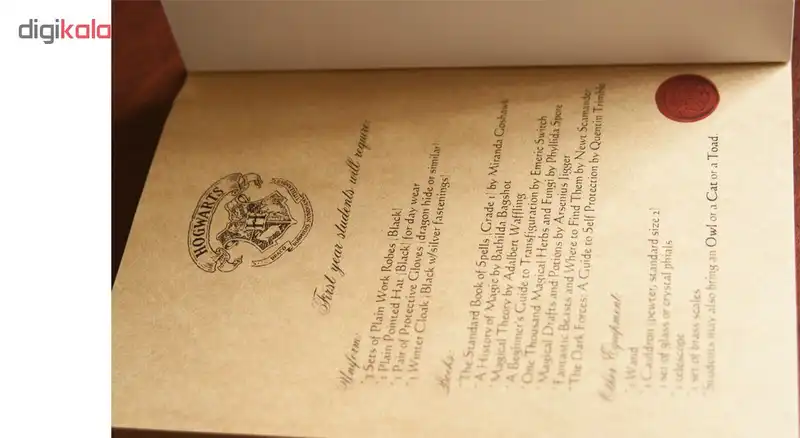 digikala
HOGWARTS
First year students will require:
Uniform:
3 Sets of Plain Work Robes (Black)
1 Plain Pointed Hat (Black) for day wear
1 Pair of Protective Gloves (dragon hide or similar)
1 Winter Cloak (Black w/silver fastenings)
Books:
The Standard Book of Spells (Grade 1) by Miranda Goshawk
A History of Magic by Bathilda Bagshot
Magical Theory by Adalbert Waffling
A Beginner's Guide to Transfiguration by Emeric Switch
One Thousand Magical Herbs and Fungi by Phyllida Spore
Magical Drafts and Potions by Arsenius Jigger
Fantastic Beasts and Where to Find Them by Newt Scamander
The Dark Forces: A Guide to Self Protection by Quentin Trimble
Other Equipment
1 Wand
1 Cauldron (pewter, standard size 2)
1 set of glass or crystal phials
1 telescope
1 set of brass scales
Students may also bring an Owl or a Cat or a Toad.